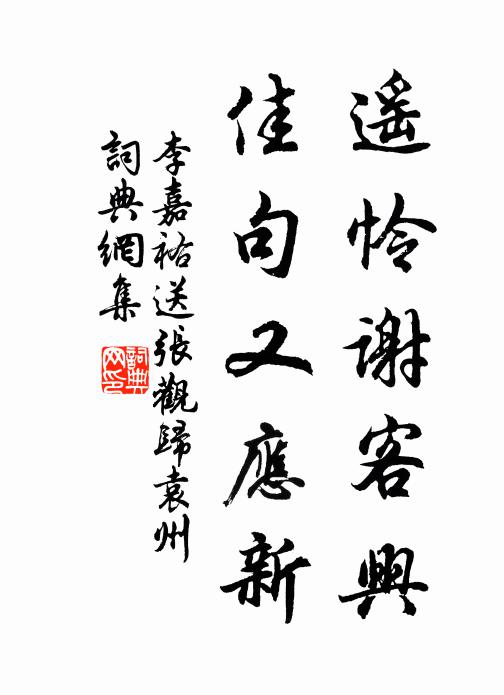 遥怜謝客興
佳句又應新
李嘉祐送張觀歸袁州
詞典網集
詞典網印